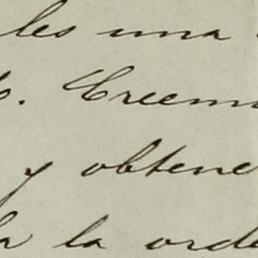 les una
Creem
y obtene
la la orde